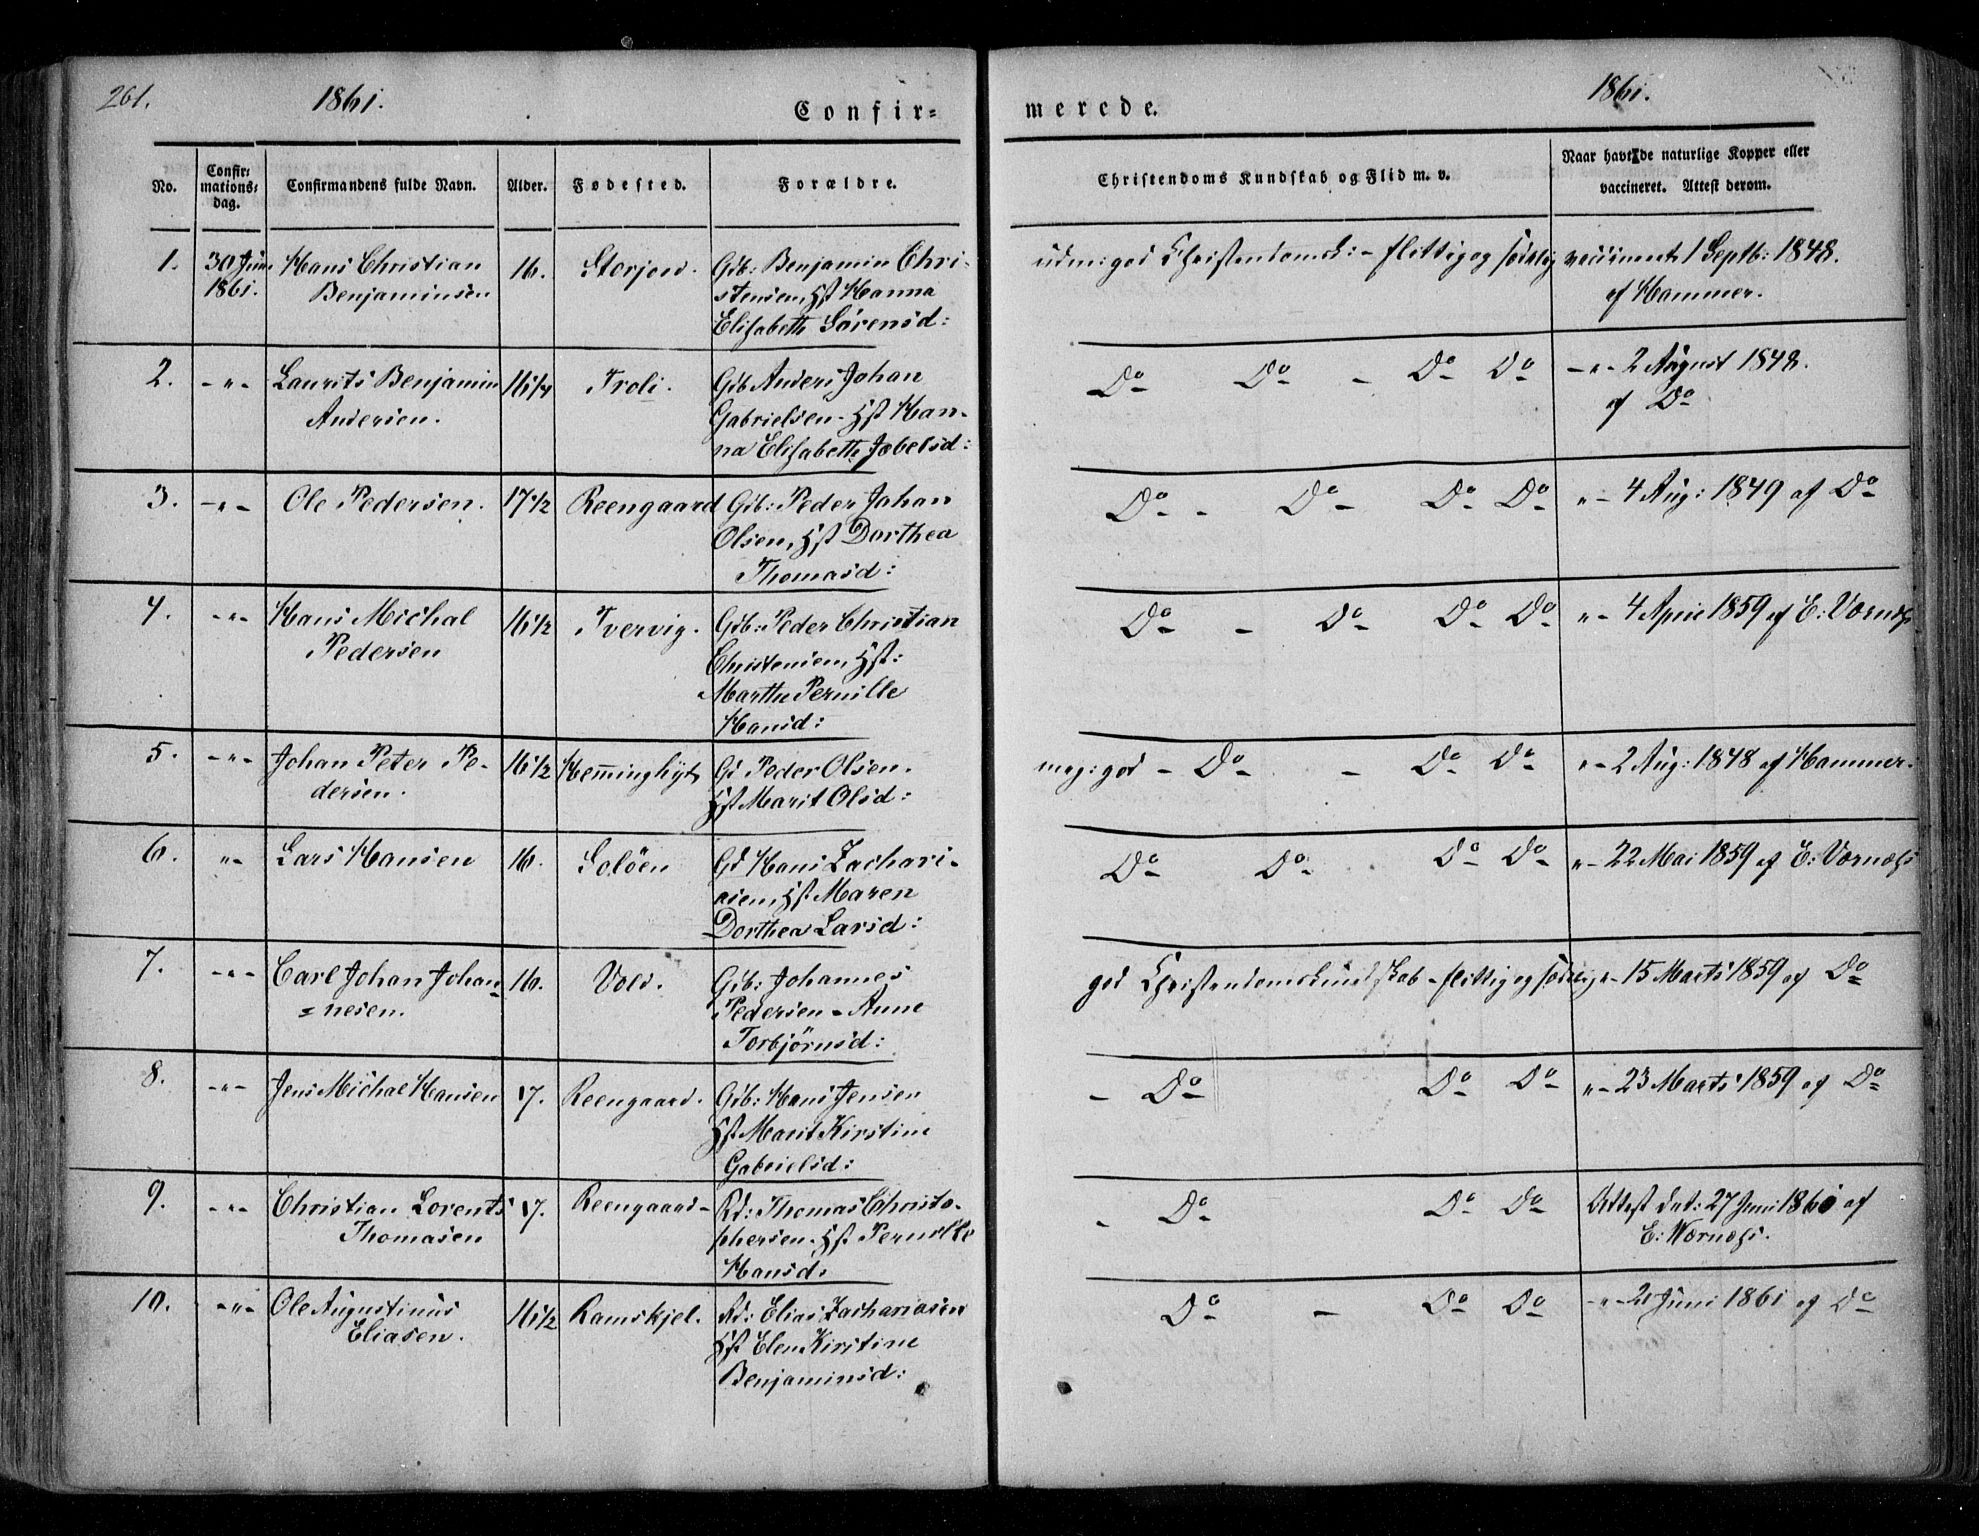 261. 1861. Confir-
merede. 1861.
No. Confir-mations-dag. Confirmandens fulde Navn. Alder. Fødested. Forældre. Christendoms Kundskab og Flid m. v. Naar havt de naturlige Kopper eller vaccineret. Attest derom.
1. 30 Juni 1861. Hans Christian Benjaminsen 16. Storjord. Gdb: Benjamin Christensen, Hst Hanna Elisabeth Sørensd: udm: god Christendomsk: - flittig og sædelig vaccineret 1 Septb: 1848. af Hammer.
2. -"- Laurits Benjamin Andersen. 16 1/4 Troli. Gdb Anders Johan Gabrielsen. Hst Hanna Elisabeth Jobelsd: Do Do - Do Do -"- 2 August 1848. af Do
3. -"- Ole Pedersen. 17 1/2 Reengaard Gdb: Peder Johan Olsen, Hst Dorthea Thomasd: Do - Do - Do Do "- 4 Aug: 1849 af Do
4. -"- Hans Michal Pedersen 16 1/2 Tvervig. Gdb: Peder Christian Christensen, Hst: Martha Pernille Hansd: Do - Do Do Do "- 4 April 1859 af E: Værnæs
5. -"- Johan Peter Pedersen. 16 1/2 Gd Peder Olsen. Hst Marit Olsd: meg: god - Do - Do Do "- 2 Aug: 1848 af Hammer.
6. "- Lars Hansen 16. Soløen Gd Hans Zachariasen, Hst Maren Dorthea Larsd: Do Do - Do Do "- 22 Mai 1859 af E: Værnæs
7. -"- Carl Johan Johan=nesen. 16. Vold. Gdb: Johannes Pedersen - Anne Torbjørnsd: god Christendomskundskab - flittig og sædelig "- 15 Marts 1859 af Do
8. -"- Jens Michal Hansen 17. Reengaard. Gdb: Hans Jensen Hst Marit Kirstine Gabrielsd: - Do Do Do "- 23 Marts 1859 af Do
9. -"- Christian Lorents Thomasen 17. Reengaard - Rd: Thomas Christophersen. Hst Pernille Hansd: - Do Do Do Attest dat: 27 Juni 1860 af E: Wærnæs.
10. -"- Ole Augustinus Eliasen. 16 1/2 Ramskjel. Rd: Elias Zachariasen Hst Elen Kirstine Benjaminsd: Do - Do Do -"- 21 Juni 1861 af Do